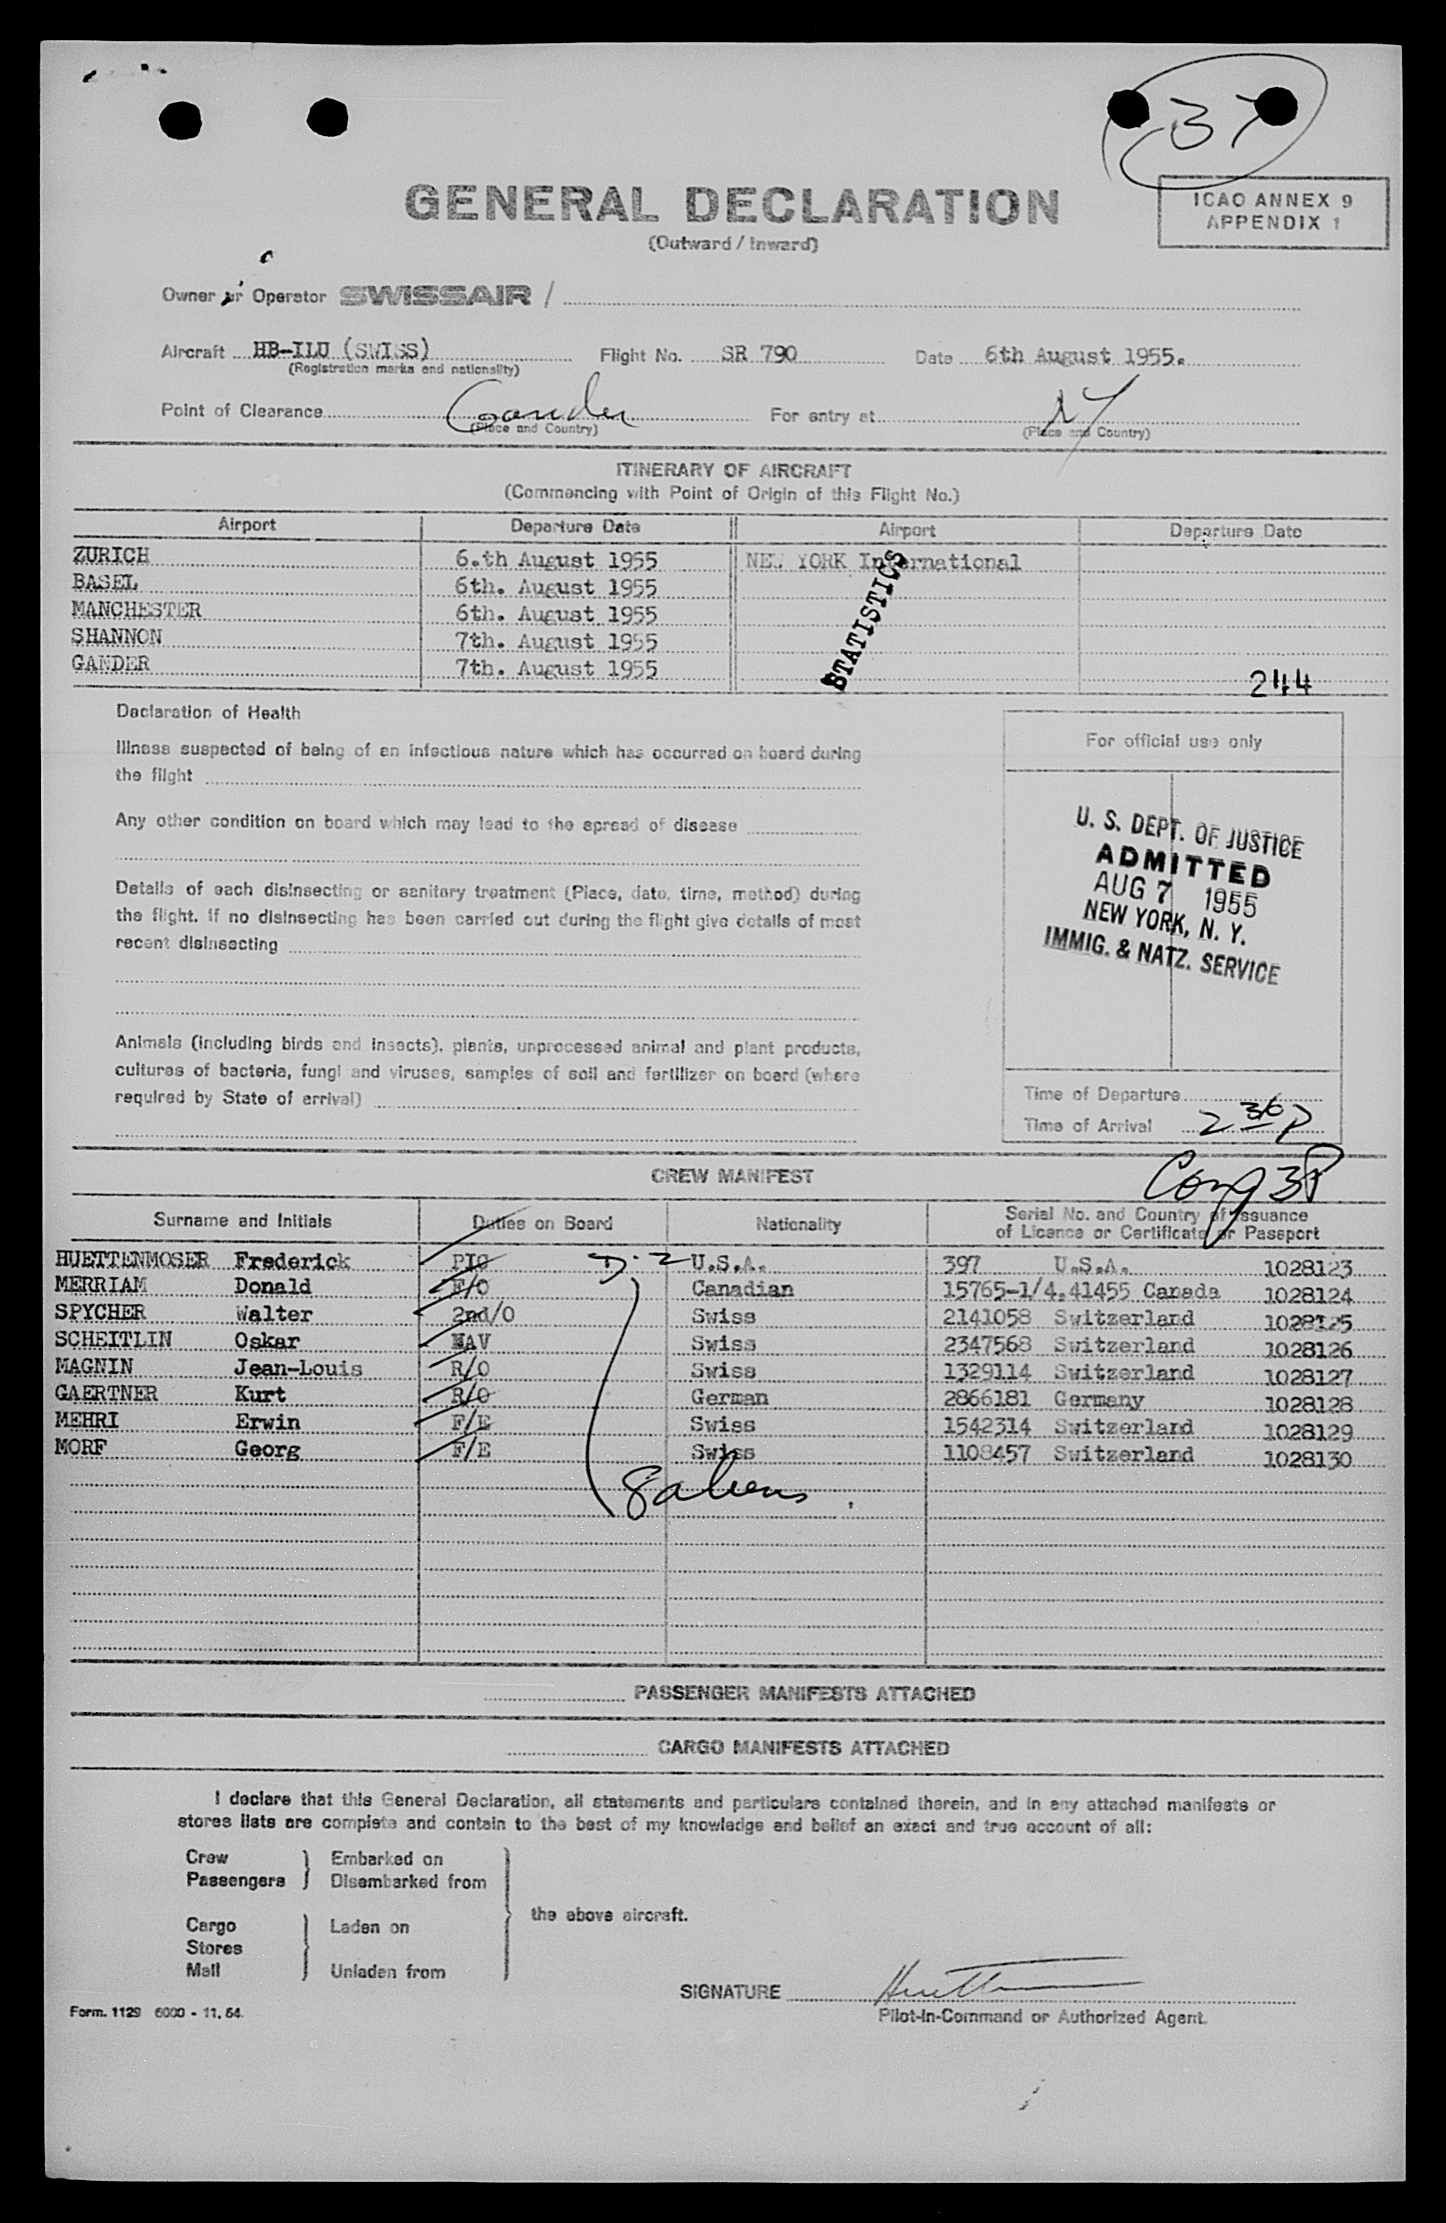 37
GENERAL DECLARATION
(Outward / Inward)
ICAO ANNEX 9
APPENDIX 1
Owner or Operator SWISSAIR /
Aircraft HB-ILU (SWISS) Flight No. SR 790 Date 6th August 1955.
(Registration marks and nationality)
Point of Clearance Gander For entry at NY
(Place and Country) (Place and Country)
ITINERARY OF AIRCRAFT
(Commencing with Point of Origin of this Flight No.)
Airport Departure Date Airport Departure Date
ZURICH 6.th August 1955 NEW YORK International
BASEL 6th. August 1955
MANCHESTER 6th. August 1955
SHANNON 7th. August 1955
GANDER 7th. August 1955
STATISTICS
244
Declaration of Health
Illness suspected of being of an infectious nature which has occurred on board during
the flight
Any other condition on board which may lead to the spread of disease
Details of each disinsecting or sanitary treatment (Place, date, time, method) during
the flight. If no disinsecting has been carried out during the flight give details of most
recent disinsecting
Animals (including birds and insects), plants, unprocessed animal and plant products,
cultures of bacteria, fungi and viruses, samples of soil and fertilizer on board (where
required by State of arrival)
For official use only
U. S. DEPT. OF JUSTICE
ADMITTED
AUG 7 1955
NEW YORK, N. Y.
IMMIG. & NATZ. SERVICE
Time of Departure
Time of Arrival 2 36 P
CREW MANIFEST
Surname and Initials Duties on Board Nationality Serial No. and Country of Issuance
of Licence or Certificate or Passport
HUETTENMOSER Frederick PIC D-2 U.S.A. 397 U.S.A. 1028123
MERRIAM Donald F/O Canadian 15765-1/4.41455 Canada 1028124
SPYCHER Walter 2nd/O Swiss 2141058 Switzerland 1028125
SCHEITLIN Oskar NAV Swiss 2347568 Switzerland 1028126
MAGNIN Jean-Louis R/O Swiss 1329114 Switzerland 1028127
GAERTNER Kurt R/O German 2866181 Germany 1028128
MEHRI Erwin F/E Swiss 1542314 Switzerland 1028129
MORF Georg F/E Swiss 1108457 Switzerland 1028130
8 aliens
PASSENGER MANIFESTS ATTACHED
CARGO MANIFESTS ATTACHED
I declare that this General Declaration, all statements and particulars contained therein, and in any attached manifests or
stores lists are complete and contain to the best of my knowledge and belief an exact and true account of all:
Crew Embarked on
Passengers Disembarked from
the above aircraft.
Cargo Laden on
Stores
Mail Unladen from
SIGNATURE
Pilot-in-Command or Authorized Agent.
Form. 1129 6000 - 11. 54.